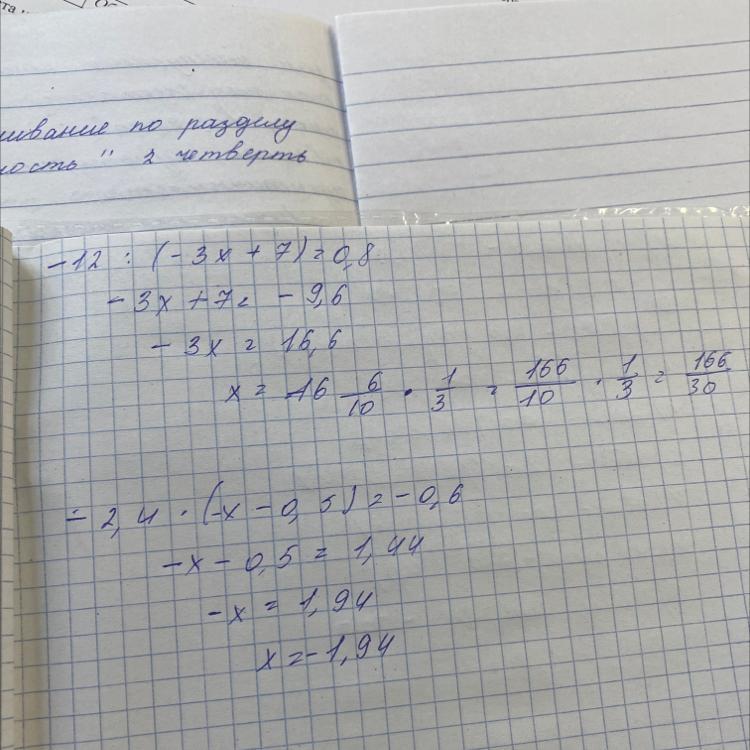 по разделу
" 2 четверть
-12 : (-3x + 7) = 0,8
-3x + 7 = -9,6
-3x = 16,6
x = -16 6/10 · 1/3 = 166/10 · 1/3 = 166/30
-2,4 · (-x - 0,5) = -0,6
-x - 0,5 = 1,44
-x = 1,94
x = -1,94